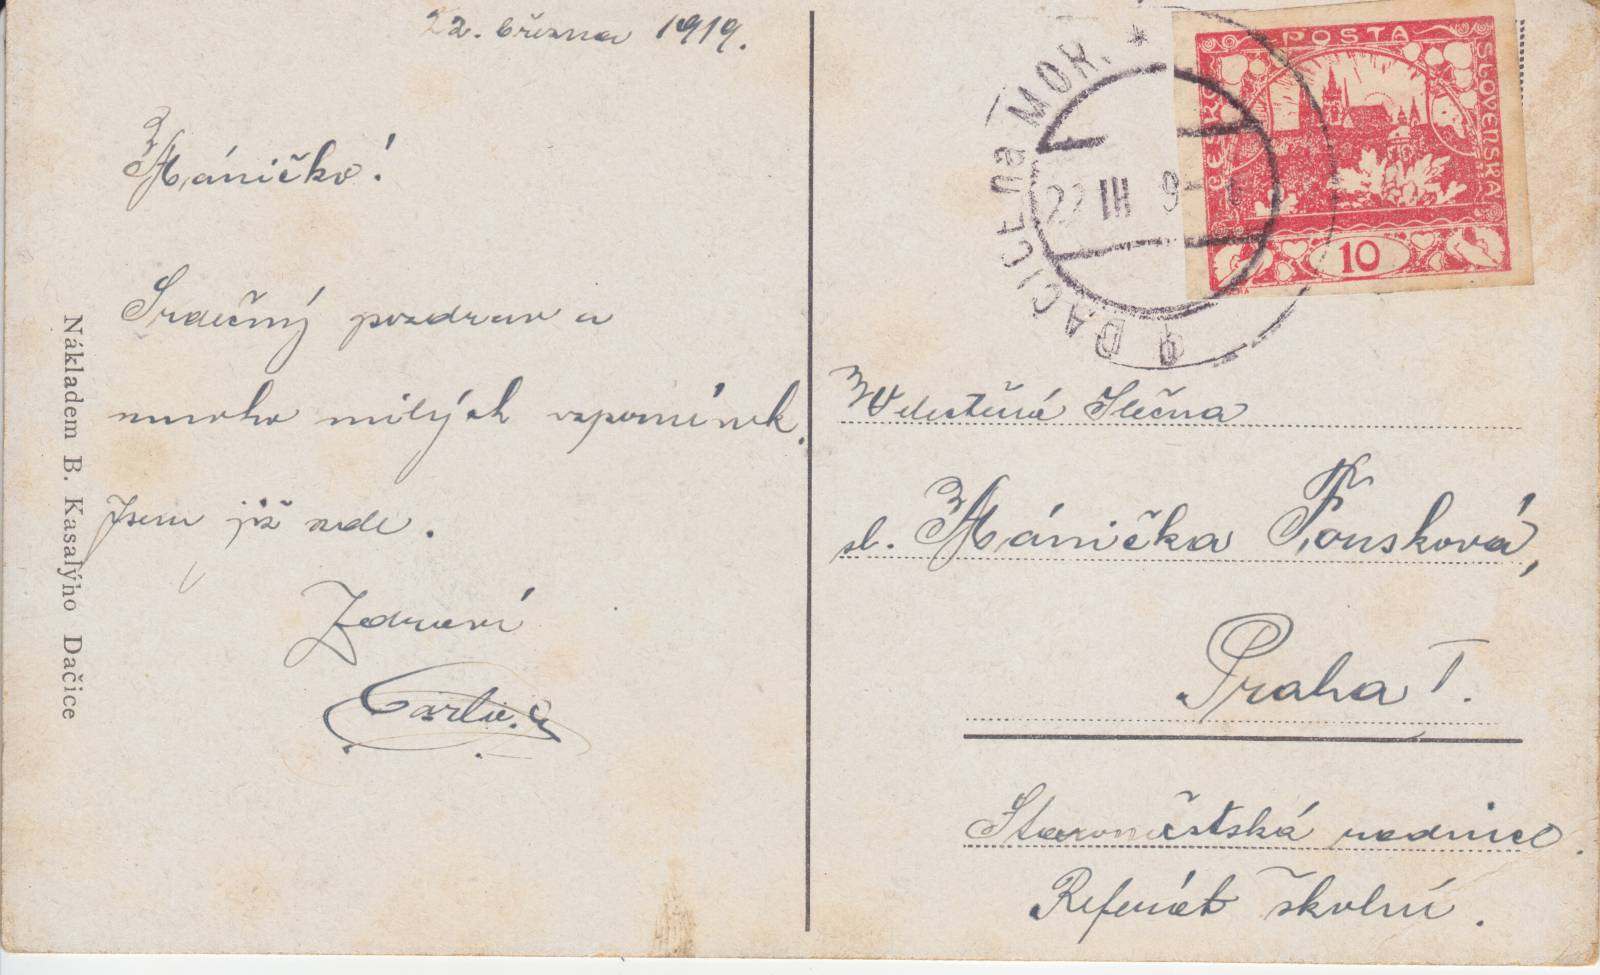 22. března 1919.
Máničko!
Srdečný pozdrav a
mnoho milých vzpomínek.
Jsem již zde.
Zdraví
Nákladem B. Kasalýho Dačice
DAČICE na MOR. *
22 III 9
POSTA
ČESKO
SLOVENSKÁ
10
Velectěná Slečna
sl. Mánička Fousková,
Praha I.
Staroměstská radnice.
Referát školní.